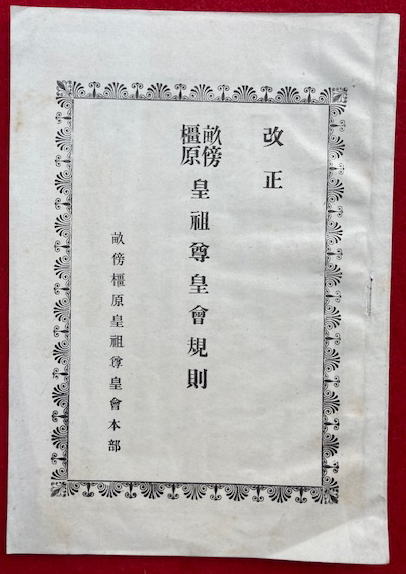 改正
畝傍橿原皇祖尊皇會規則
畝傍橿原皇祖尊皇會本部